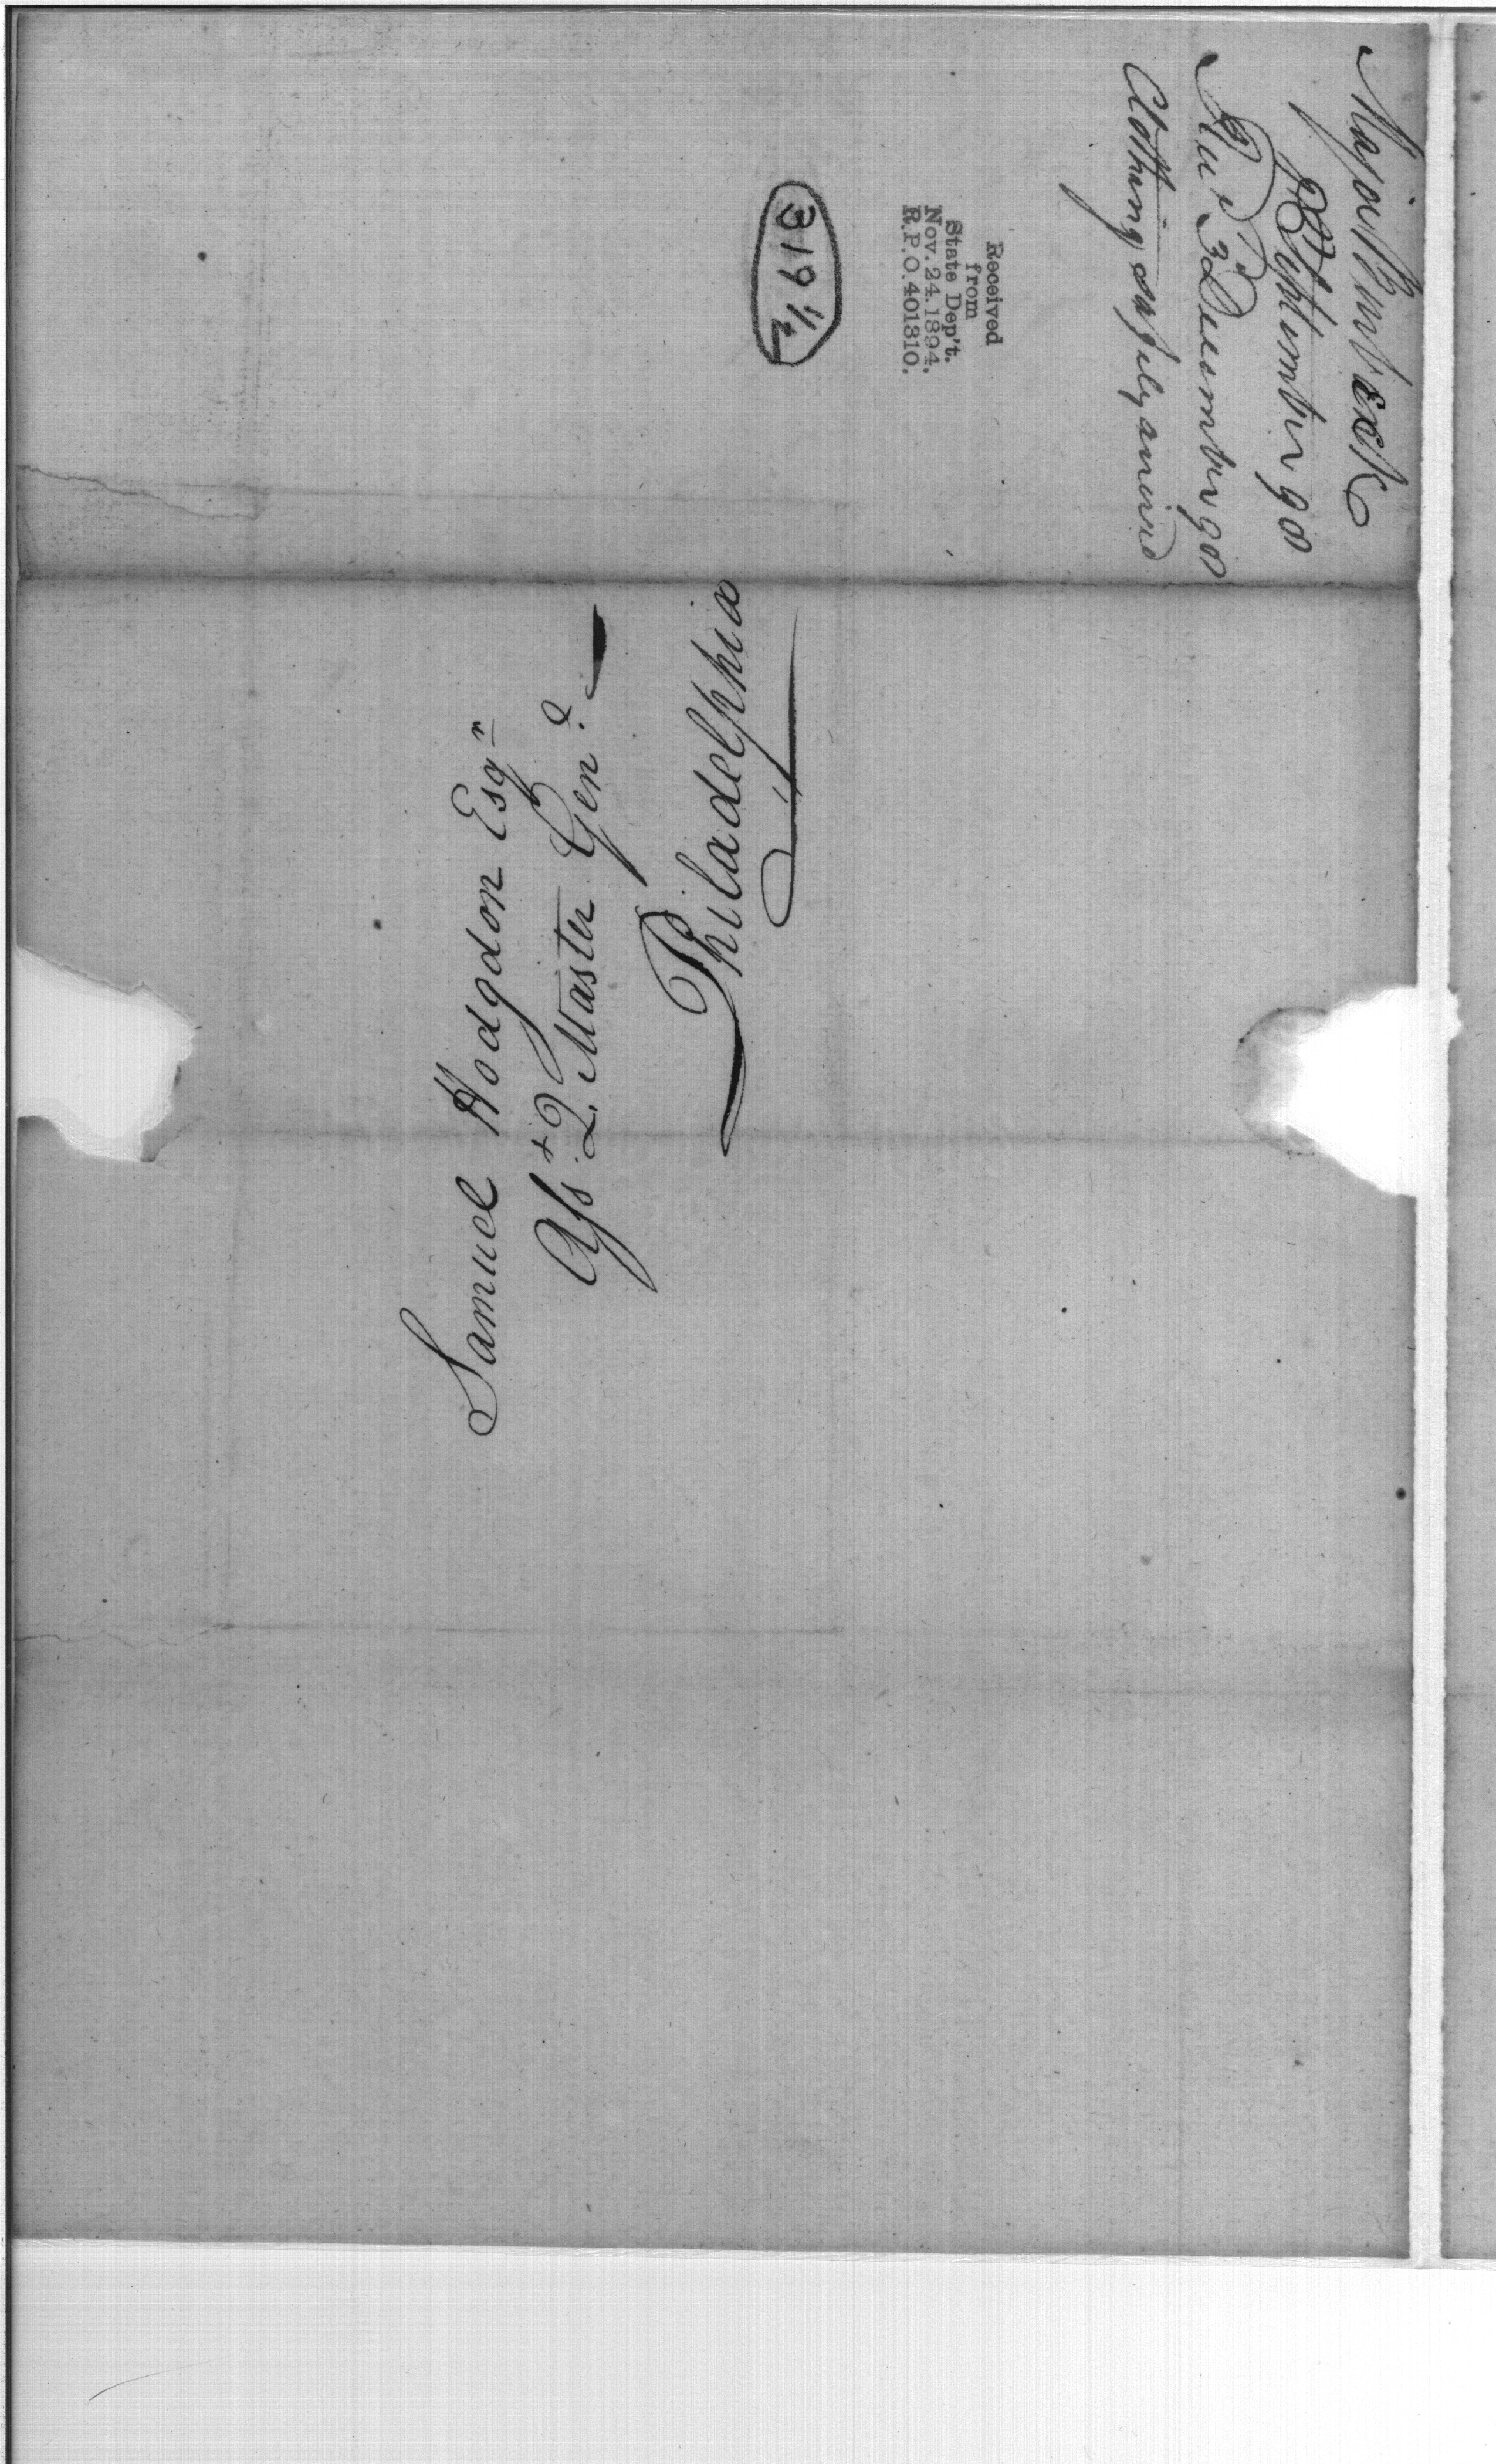 Major Burbeck
September 90
Rec.d 3d December 90
Clothing safely arrived
Received
from
State Dep't.
Nov. 24. 1894.
R.P.O. 401310.
319 1/2
Samuel Hodgdon Esqr
Asst. Q. Master Genl.
Philadelphia